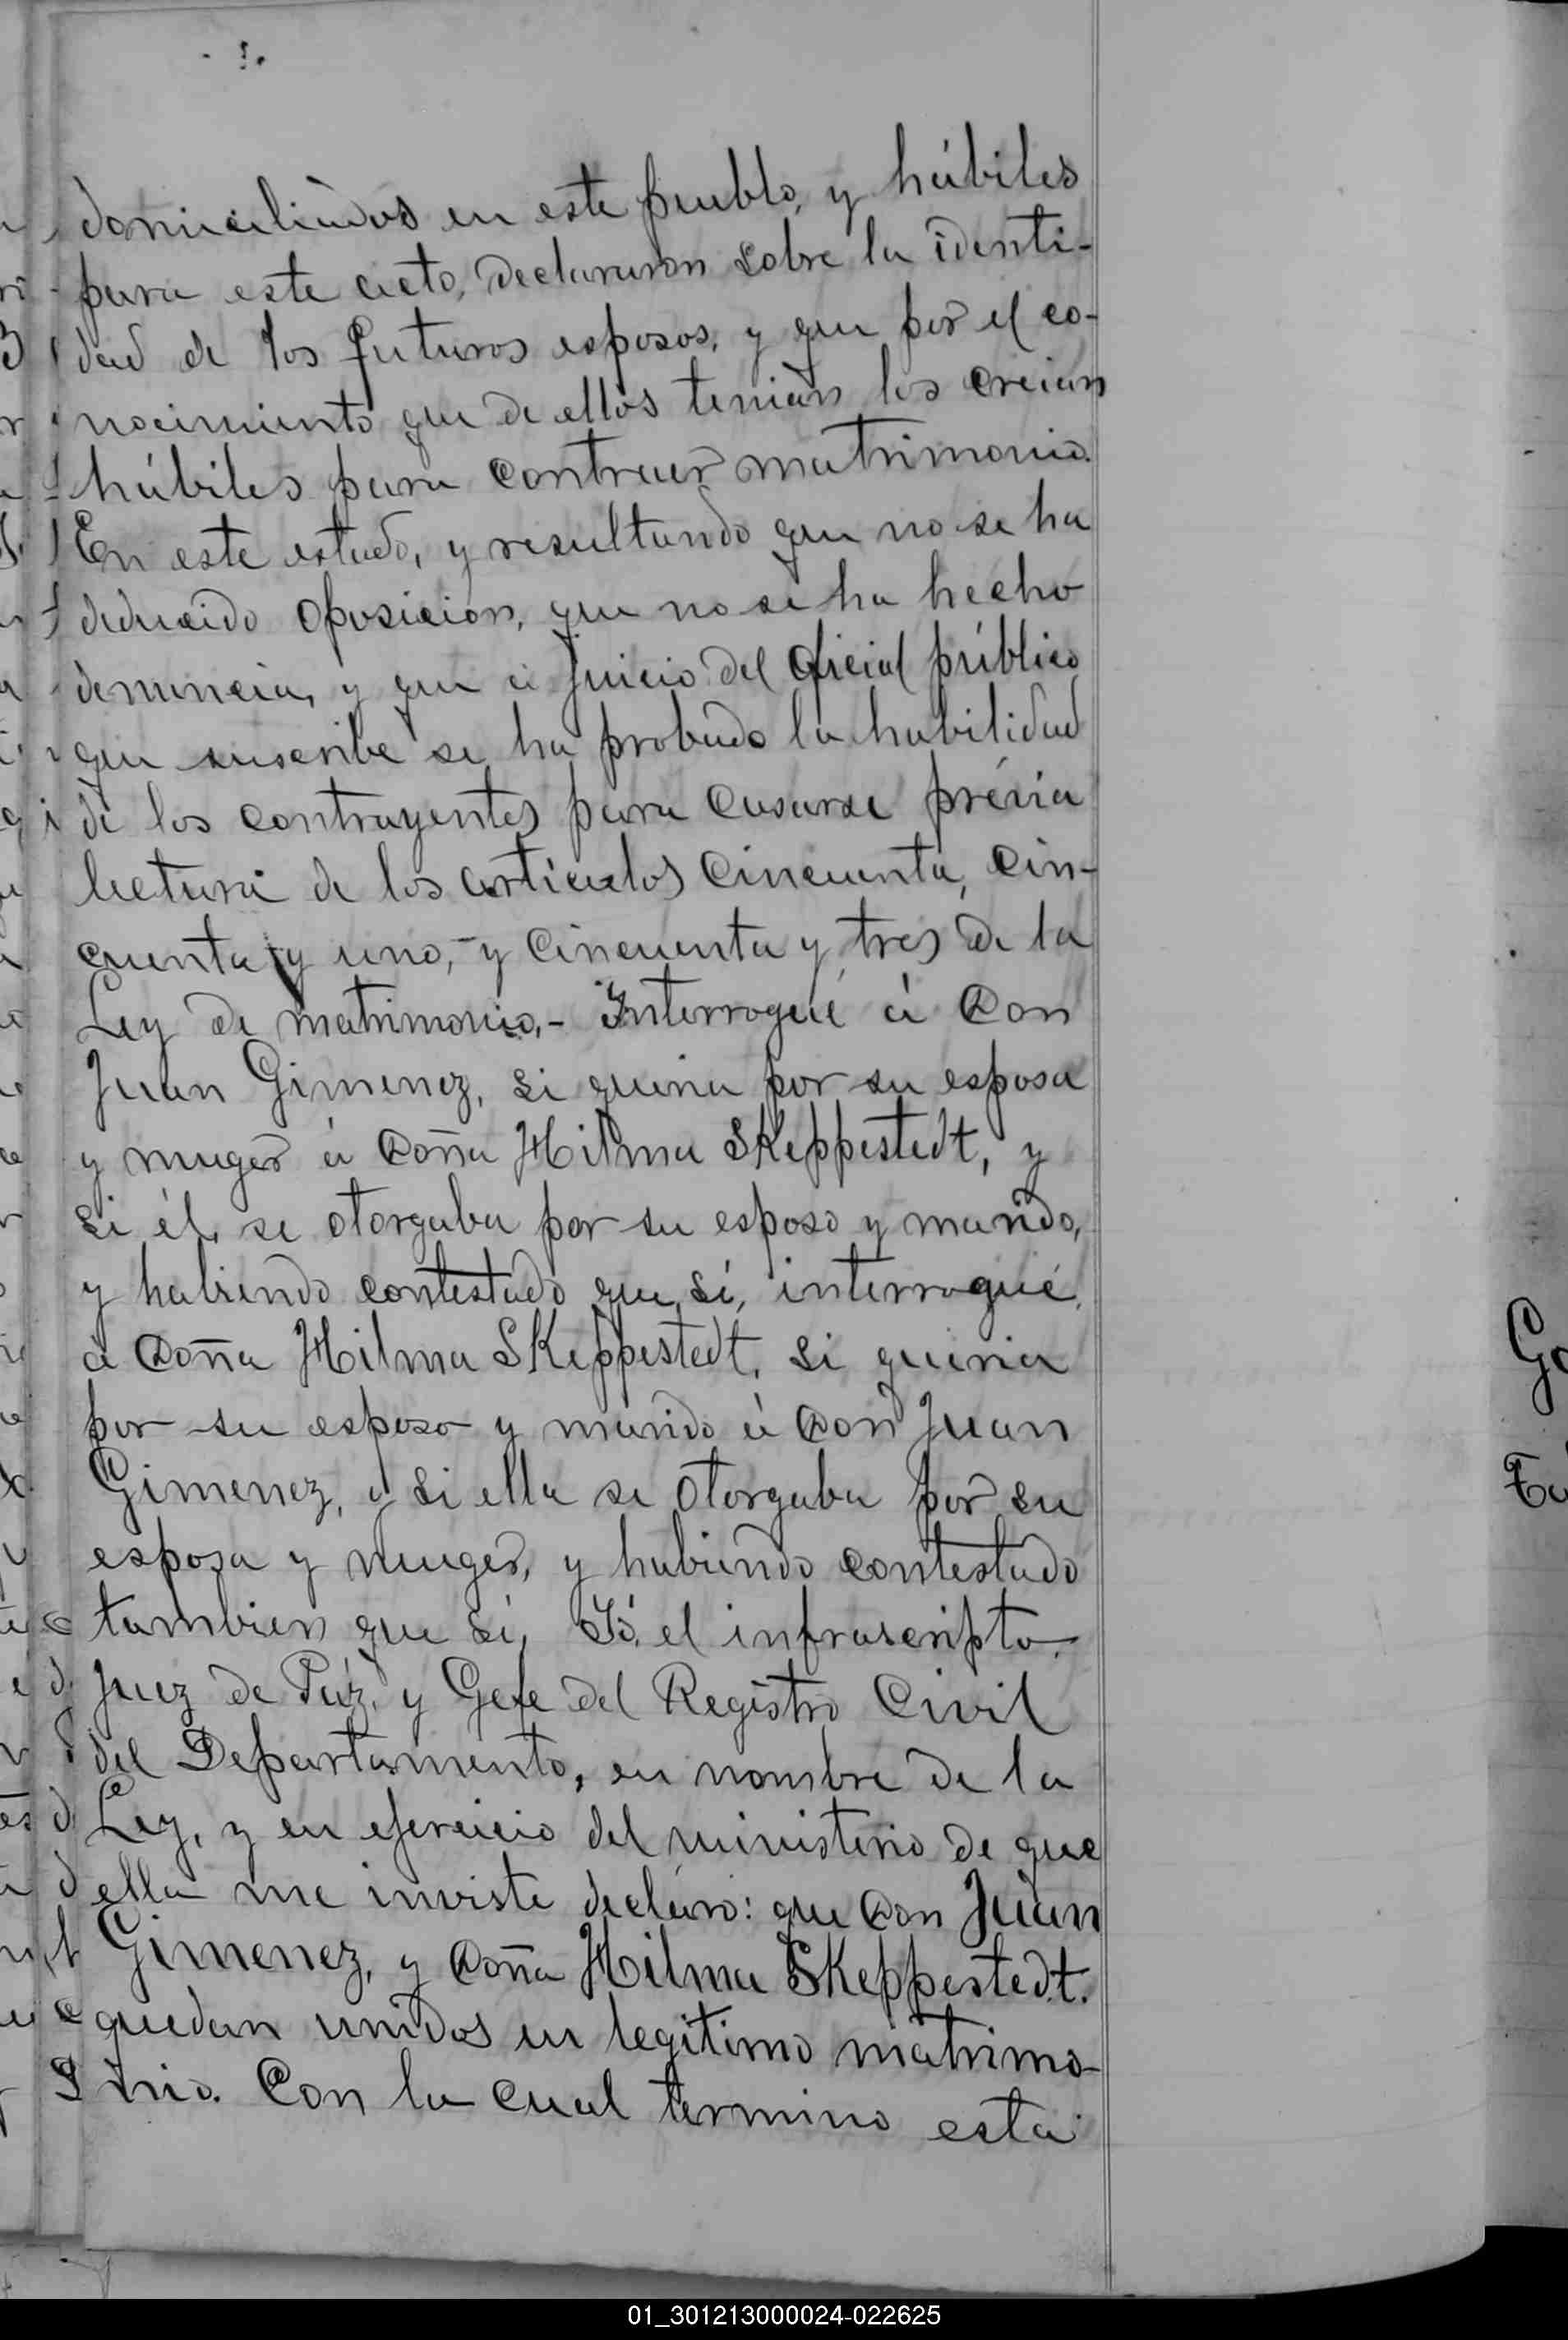 domiciliados en este pueblo, y hábiles
para este acto, declararon sobre la identi-
dad de los futuros esposos, y que por el co-
nocimiento que de ellos tenian los creian
hábiles para contraer matrimonio.
En este estado, y resultando que no se ha
deducido oposición, que no se ha hecho
denuncia, y que á juicio del oficial público
que suscribe se ha probado la habilidad
de los contrayentes para casarse prévia
lectura de los artículos cincuenta, cin-
cuenta y uno, y cincuenta y tres de la
Ley de matrimonio.- Interrogué á Don
Juan Gimenez, si queria por su esposa
y muger á Doña Hilma SKeppestedt, y
si él, se otorgaba por su esposo y marido,
y habiendo contestado que sí, interrogué
á Doña Hilma SKeppestedt, si queria
por su esposo y marido á Don Juan
Gimenez, y si ella se otorgaba por su
esposa y muger, y habiendo contestado
tambien que sí, Yó, el infrascripto
Juez de Páz, y Gefe del Registro Civil
del Departamento, en nombre de la
Ley, y en ejercicio del ministerio de que
ella me inviste declaro: que Don Juan
Gimenez, y Doña Hilma SKeppestedt.
quedan unidos en legitimo matrimo-
nio. Con la cual termino esta
01_301213000024-022625